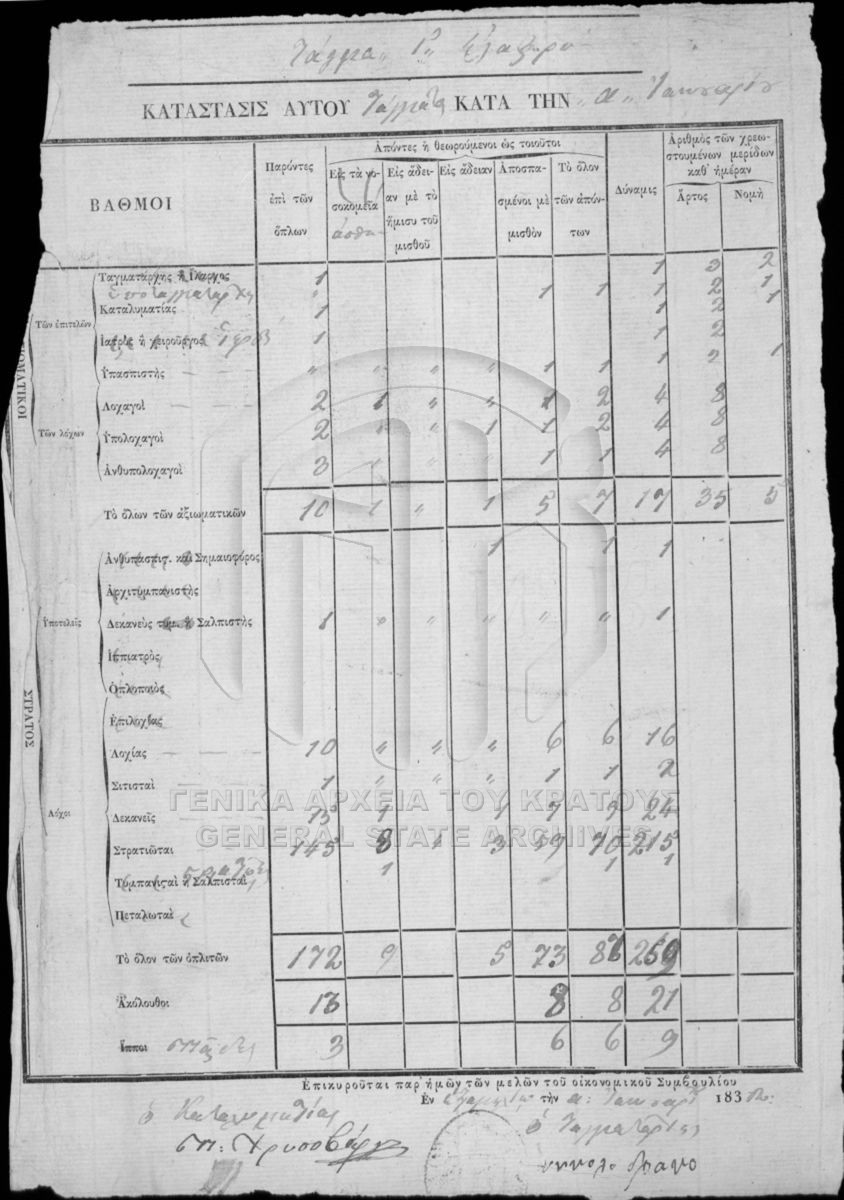 Τάγμα Γον Ἐλαφρὸ
ΚΑΤΑΣΤΑΣΙΣ ΑΥΤΟΥ Τάγματος ΚΑΤΑ ΤΗΝ α Ἰανουαρίου
ΒΑΘΜΟΙ
Παρόντες ἐπὶ τῶν ὅπλων
Ἀπόντες ἢ θεωρούμενοι ὡς τοιοῦτοι
Εἰς τὰ νοσοκομεῖα
Εἰς ἄδειαν μὲ τὸ ἥμισυ τοῦ μισθοῦ
Εἰς ἄδειαν
Ἀποσπασμένοι μὲ μισθὸν
Τὸ ὅλον τῶν ἀπόντων
Δύναμις
Ἀριθμὸς τῶν χρεωστουμένων μερίδων καθ' ἡμέραν
Ἄρτος Νομὴ
Τῶν ἐπιτελῶν
Ταγματάρχης ἢ Ἴλαρχος 1 1 3 2
Ὑποταγματάρχης " 1 1 1 2 1
Καταλυματίας 1 1 2 1
Ἰατρὸς ἢ χειροῦργος 1 1 2
Ὑπασπιστὴς " " " " 1 1 1 2 1
Τῶν λόχων
Λοχαγοὶ 2 1 " " 1 2 4 8
Ὑπολοχαγοὶ 2 " " 1 1 2 4 8
Ἀνθυπολοχαγοὶ 3 " " " 1 1 4 8
Τὸ ὅλων τῶν ἀξιωματικῶν 10 1 " 1 5 7 17 35 5
ΣΤΡΑΤΟΣ
Ὑποτελεῖς
Ἀνθυπασπισ. καὶ Σημαιοφόρος 1 1 1
Ἀρχιτυμπανιστὴς
Δεκανεὺς τυμ. ἢ Σαλπιστὴς 1 " " " " " 1
Ἱππιατρὸς
Ὁπλοποιὸς
Λόχοι
Ἐπιλοχίας
Λοχίας 10 " " " 6 6 16
Σιτισταὶ 1 " " " 1 1 2
Δεκανεῖς 15 1 1 7 9 24
Στρατιῶται 145 8 " 3 59 70 215
Τυμπανισταὶ ἢ Σαλπισταὶ 1 1 1
Πεταλωταὶ
Τὸ ὅλον τῶν ὁπλιτῶν 172 9 5 73 259
Ἀκόλουθοι 13 8 8 21
Ἵπποι 3 6 6 9
Ἐπικυροῦται παρ' ἡμῶν τῶν μελῶν τοῦ οἰκονομικοῦ Συμβουλίου
Ἐν τὴν α: Ἰανουαρίου 183
ὁ Καταλυματίας
ὁ Ταγματάρχης
ΓΕΝΙΚΑ ΑΡΧΕΙΑ ΤΟΥ ΚΡΑΤΟΥΣ
GENERAL STATE ARCHIVES